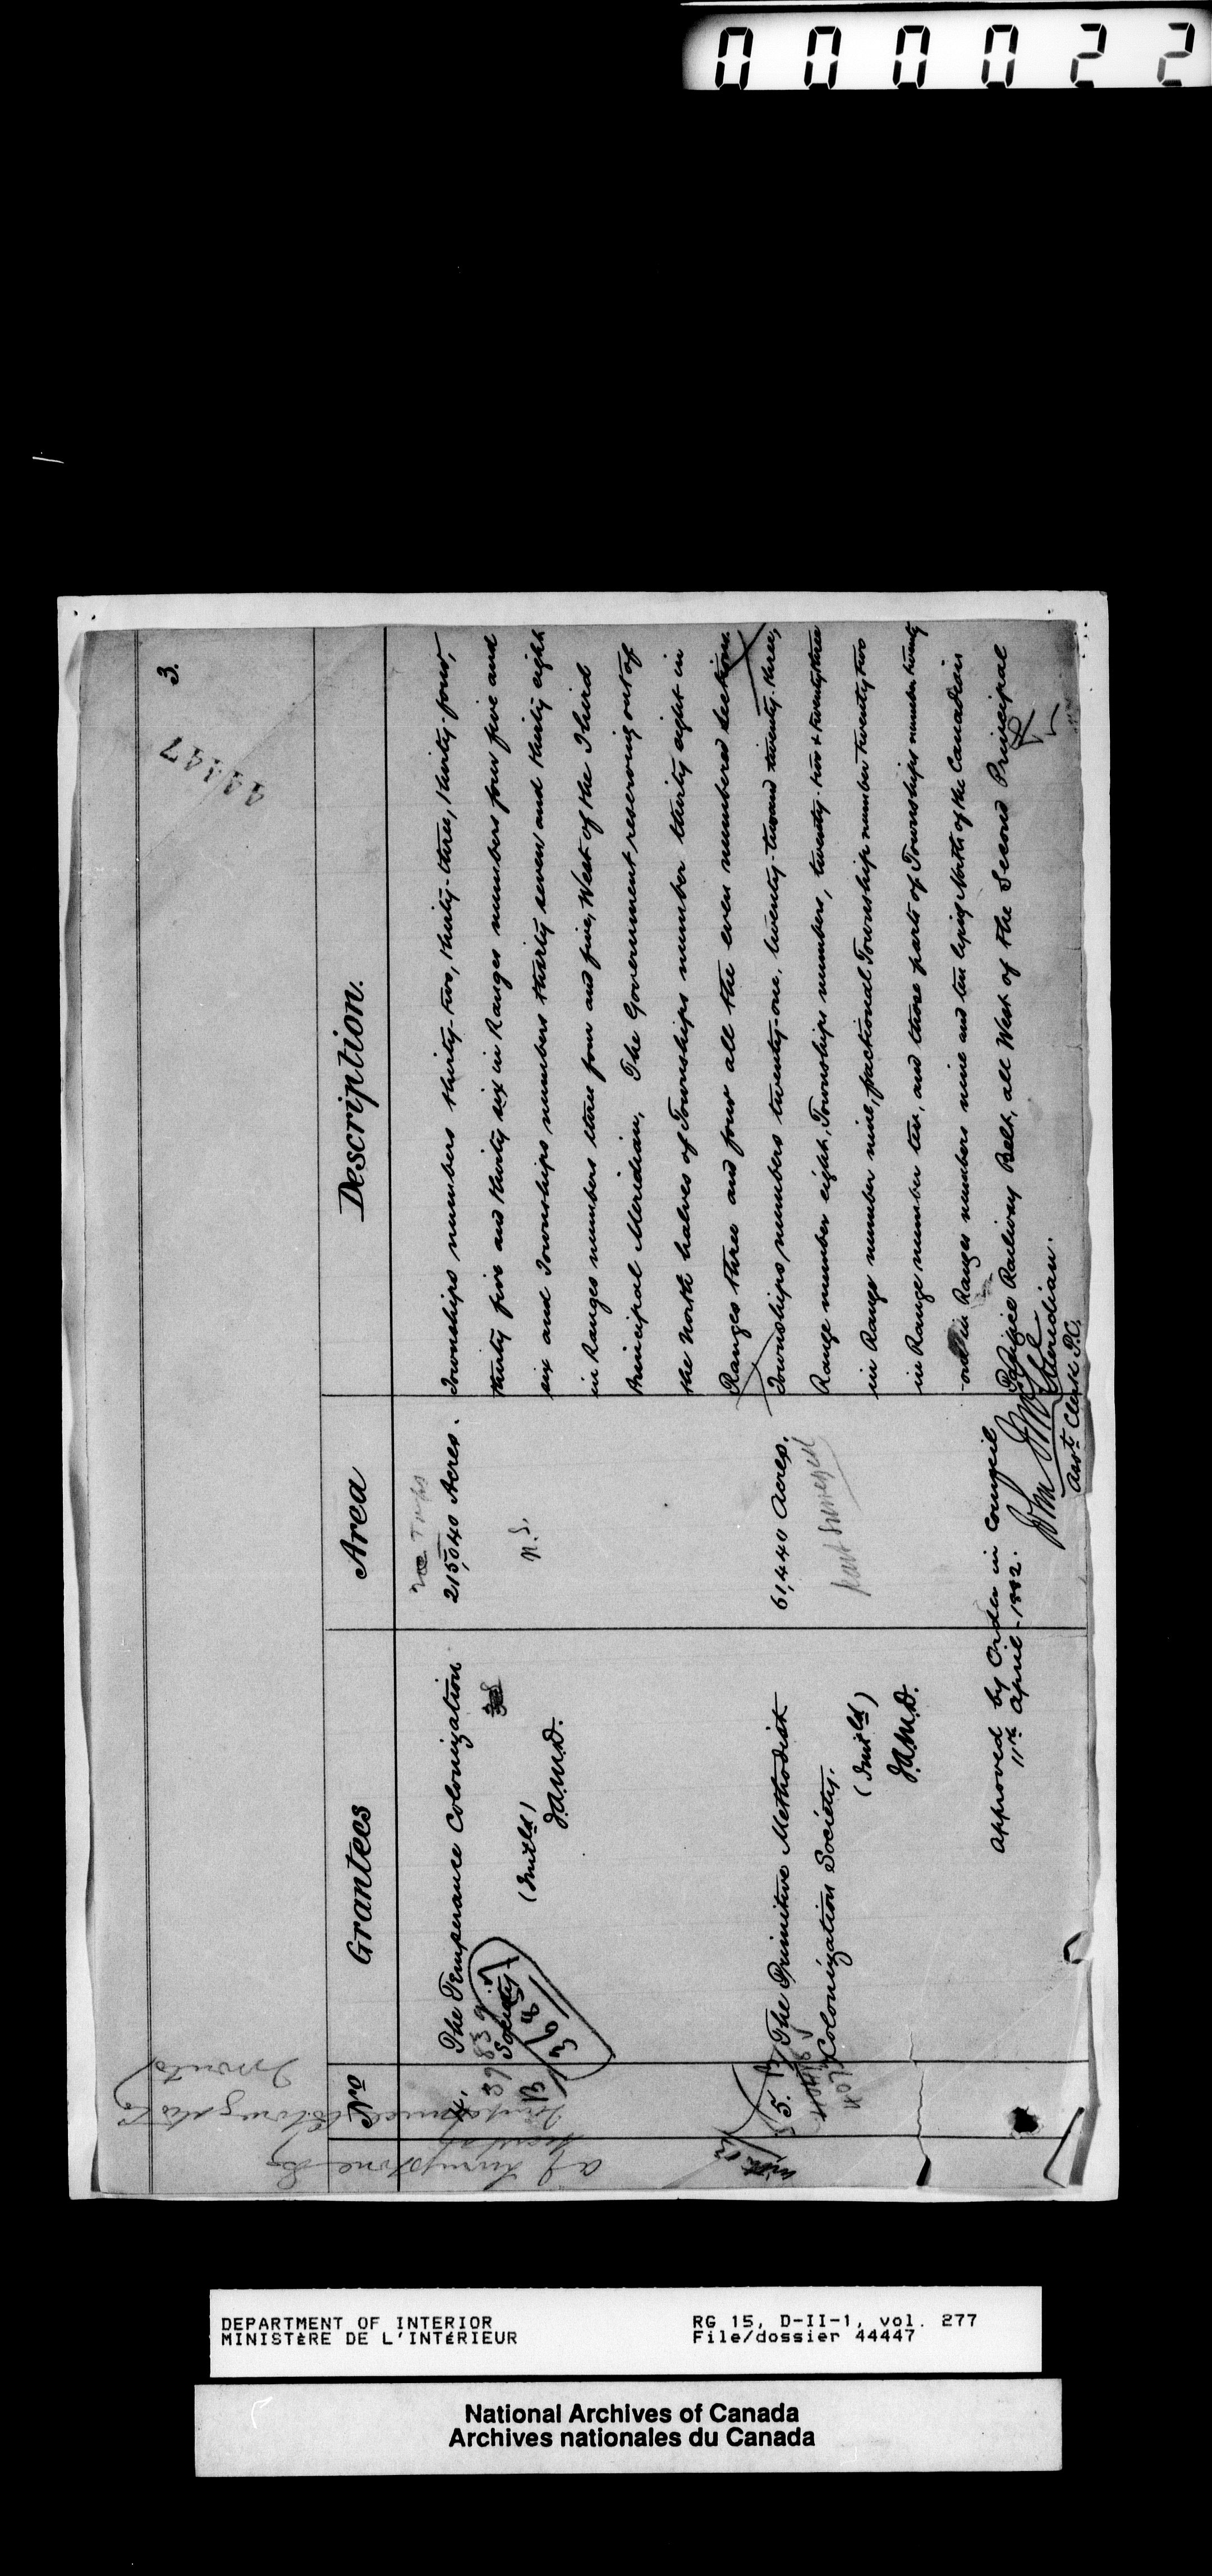 000022
3.
44447
Nro
Grantees
Area
Description.
4.
The Temperance Colonization
Society
39839
B 364
(Init'ld)
J.A.M.D.
215,040 Acres.
N.S.
Townships numbers thirty-two, thirty-three, thirty-four,
thirty five and thirty six in Ranges numbers four five and
six and Townships numbers thirty seven and thirty eight
in Ranges numbers three four and five, West of the Third
Principal Meridian, The Government reserving out of
the North halves of Townships number thirty eight in
Ranges three and four all the even numbered sections.
5.
The Primitive Methodist
Colonization Society.
(Init'ld)
J.A.M.D.
61,440 Acres.
part Surveyed
Townships numbers twenty-one, twenty-two and twenty-three,
Range number eight, Townships numbers, twenty-two & twenty three
in Range number nine, fractional Township number twenty two
in Range number ten, and those parts of Townships number twenty
one in Ranges numbers nine and ten lying North of the Canadian
Pacific Railway Belt, all West of the Second Principal
Meridian.
Approved by Order in Council
11th April - 1882.
Asst Clerk P.C.
DEPARTMENT OF INTERIOR
MINISTÈRE DE L'INTÉRIEUR
RG 15, D-II-1, vol. 277
File/dossier 44447
National Archives of Canada
Archives nationales du Canada